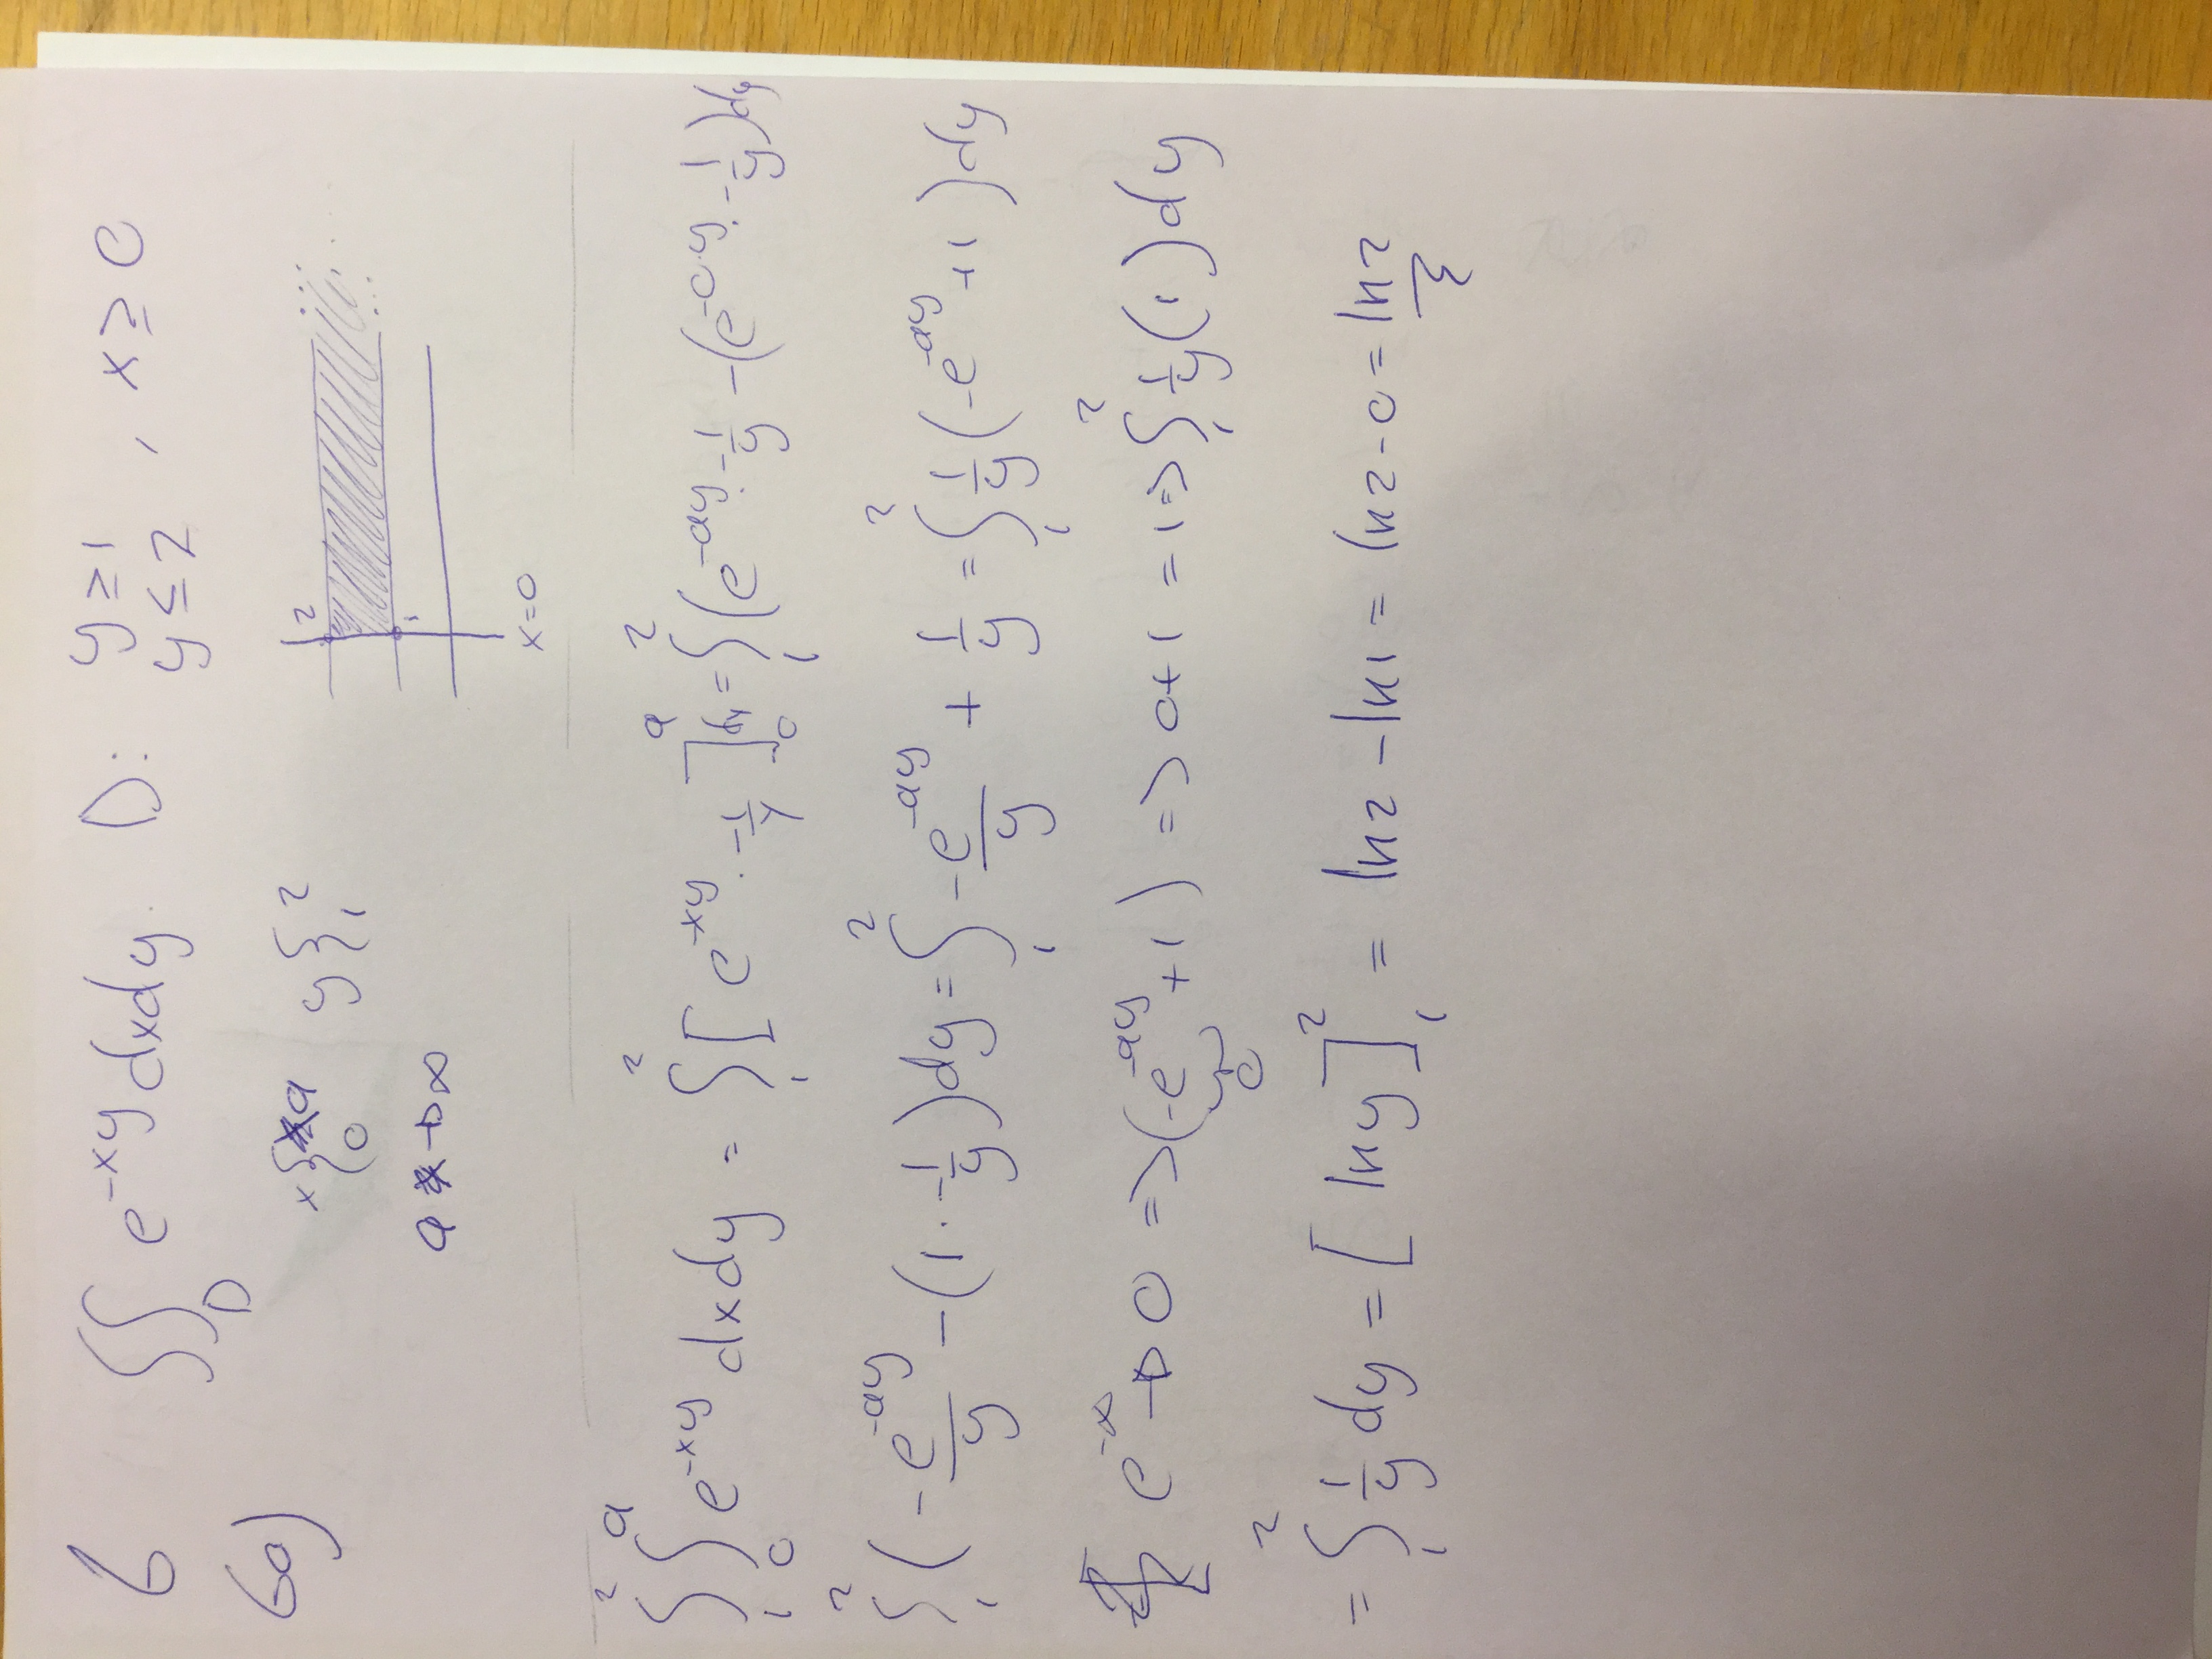 6 ∬_D e^{-xy} dxdy. D: y ≥ 1, y ≤ 2, x ≥ 0
6a)
x{_0^a y}_1^2
2
1
a → ∞
x=0
∫_1^2 ∫_0^a e^{-xy} dxdy = ∫_1^2 [e^{-xy} · -1/y]_0^a = ∫_1^2 (e^{-ay} · -1/y - (e^{-0·y} · -1/y) dy
∫_1^2 (-e^{-ay}/y - (1 · -1/y) dy = ∫_1^2 -e^{-ay}/y + 1/y = ∫_1^2 1/y (-e^{-ay} + 1) dy
e^{-∞} → 0 => (-e^{-ay} + 1) => 0+1 = 1 => ∫_1^2 1/y (1) dy
0
= ∫_1^2 1/y dy = [ln y]_1^2 = ln2 - ln1 = ln2 - 0 = ln2